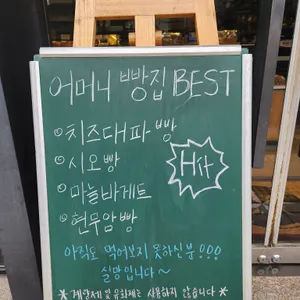 어머니 빵집 BEST
치즈대파빵
시오빵
마늘바게트
현무암빵
Hit
아직도 먹어보지 못하신분!!!
실망입니다~
*계량제 및 유화제는 사용하지 않습니다*